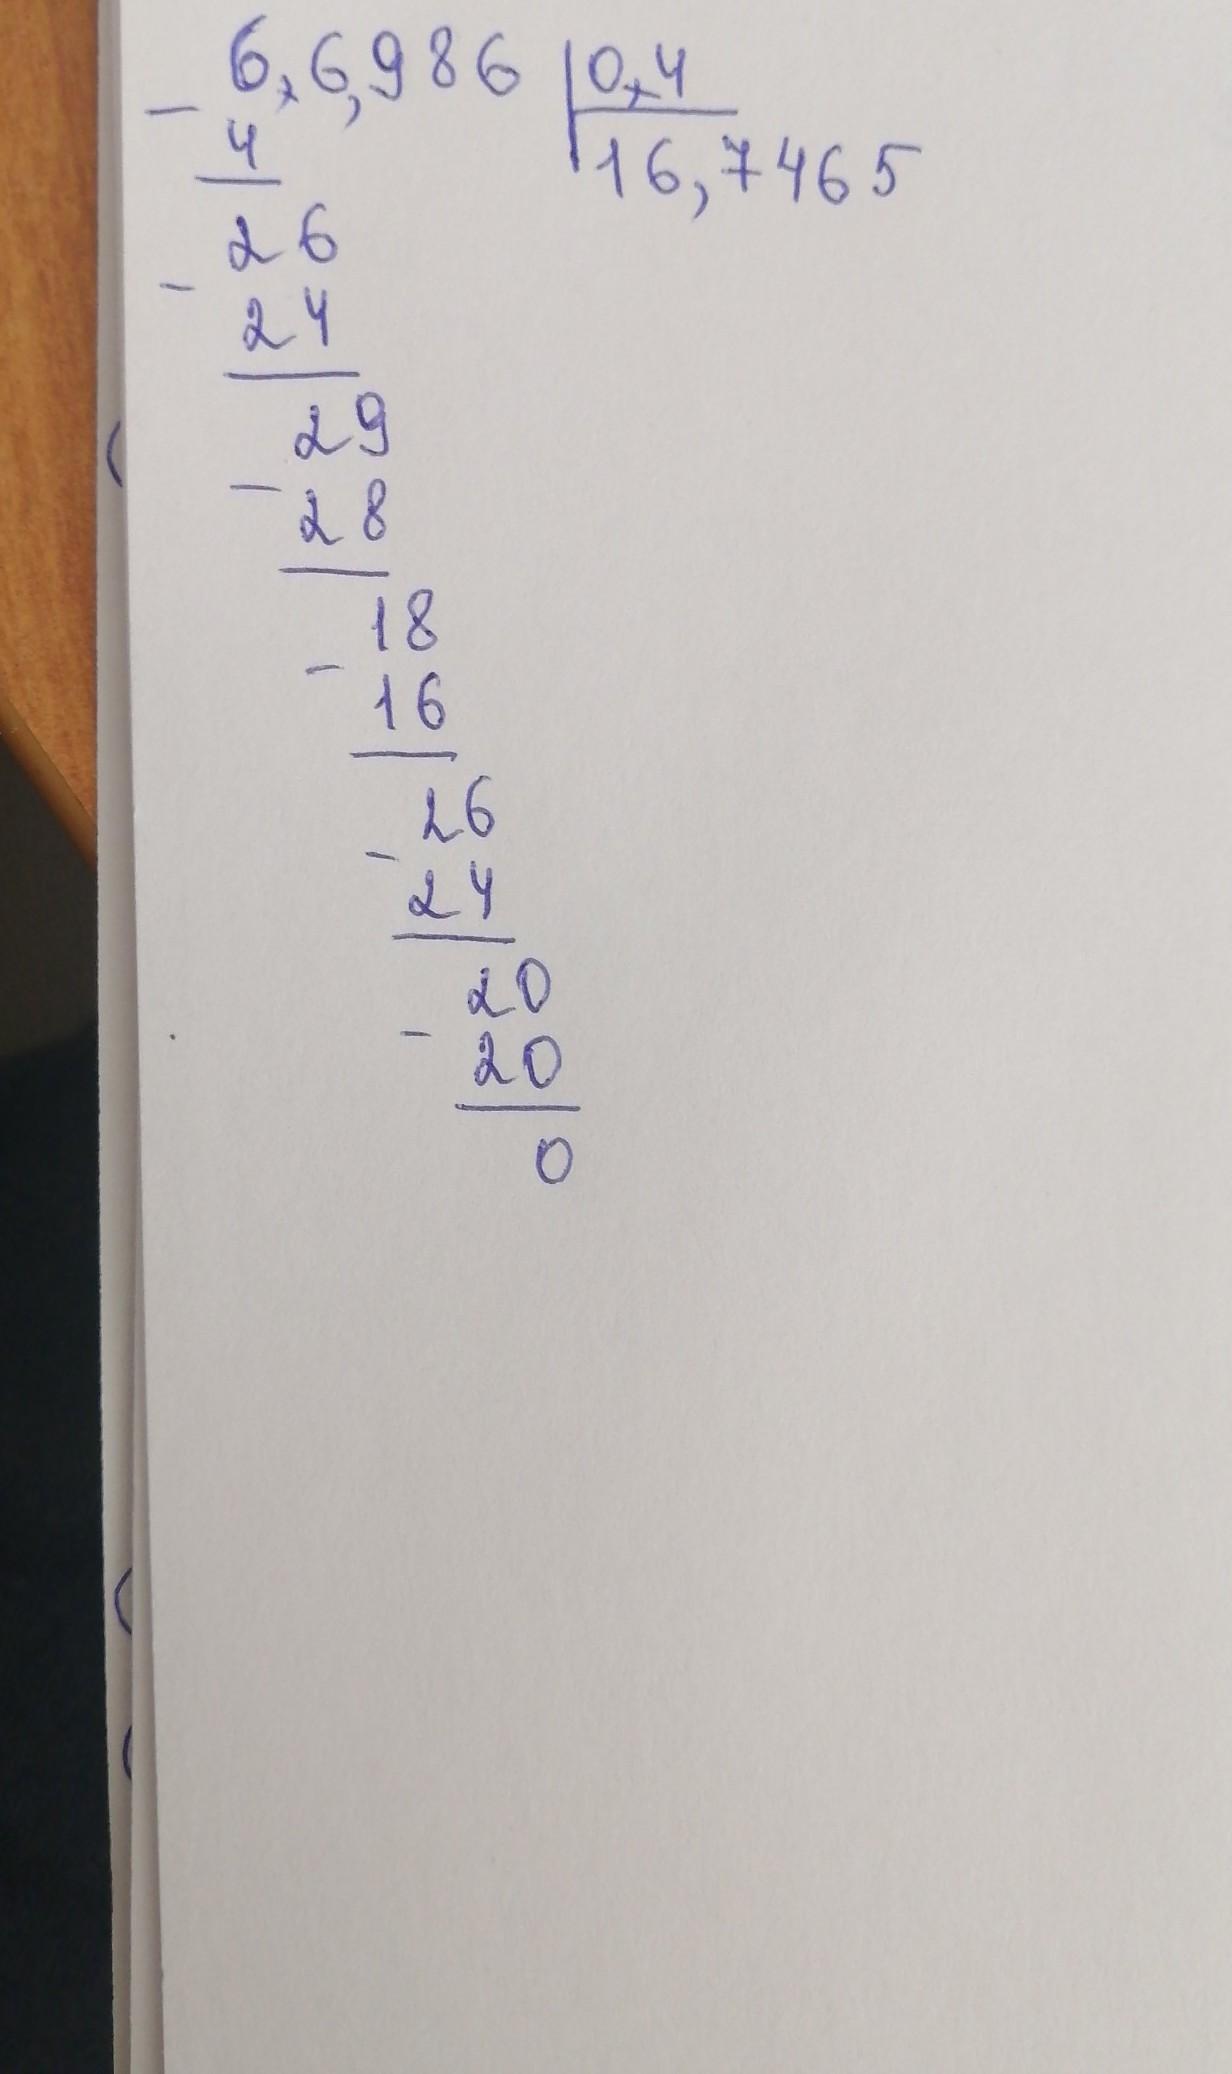 6,6,986 0,4
- 4 16,7465
26
- 24
29
- 28
18
- 16
26
- 24
20
- 20
0